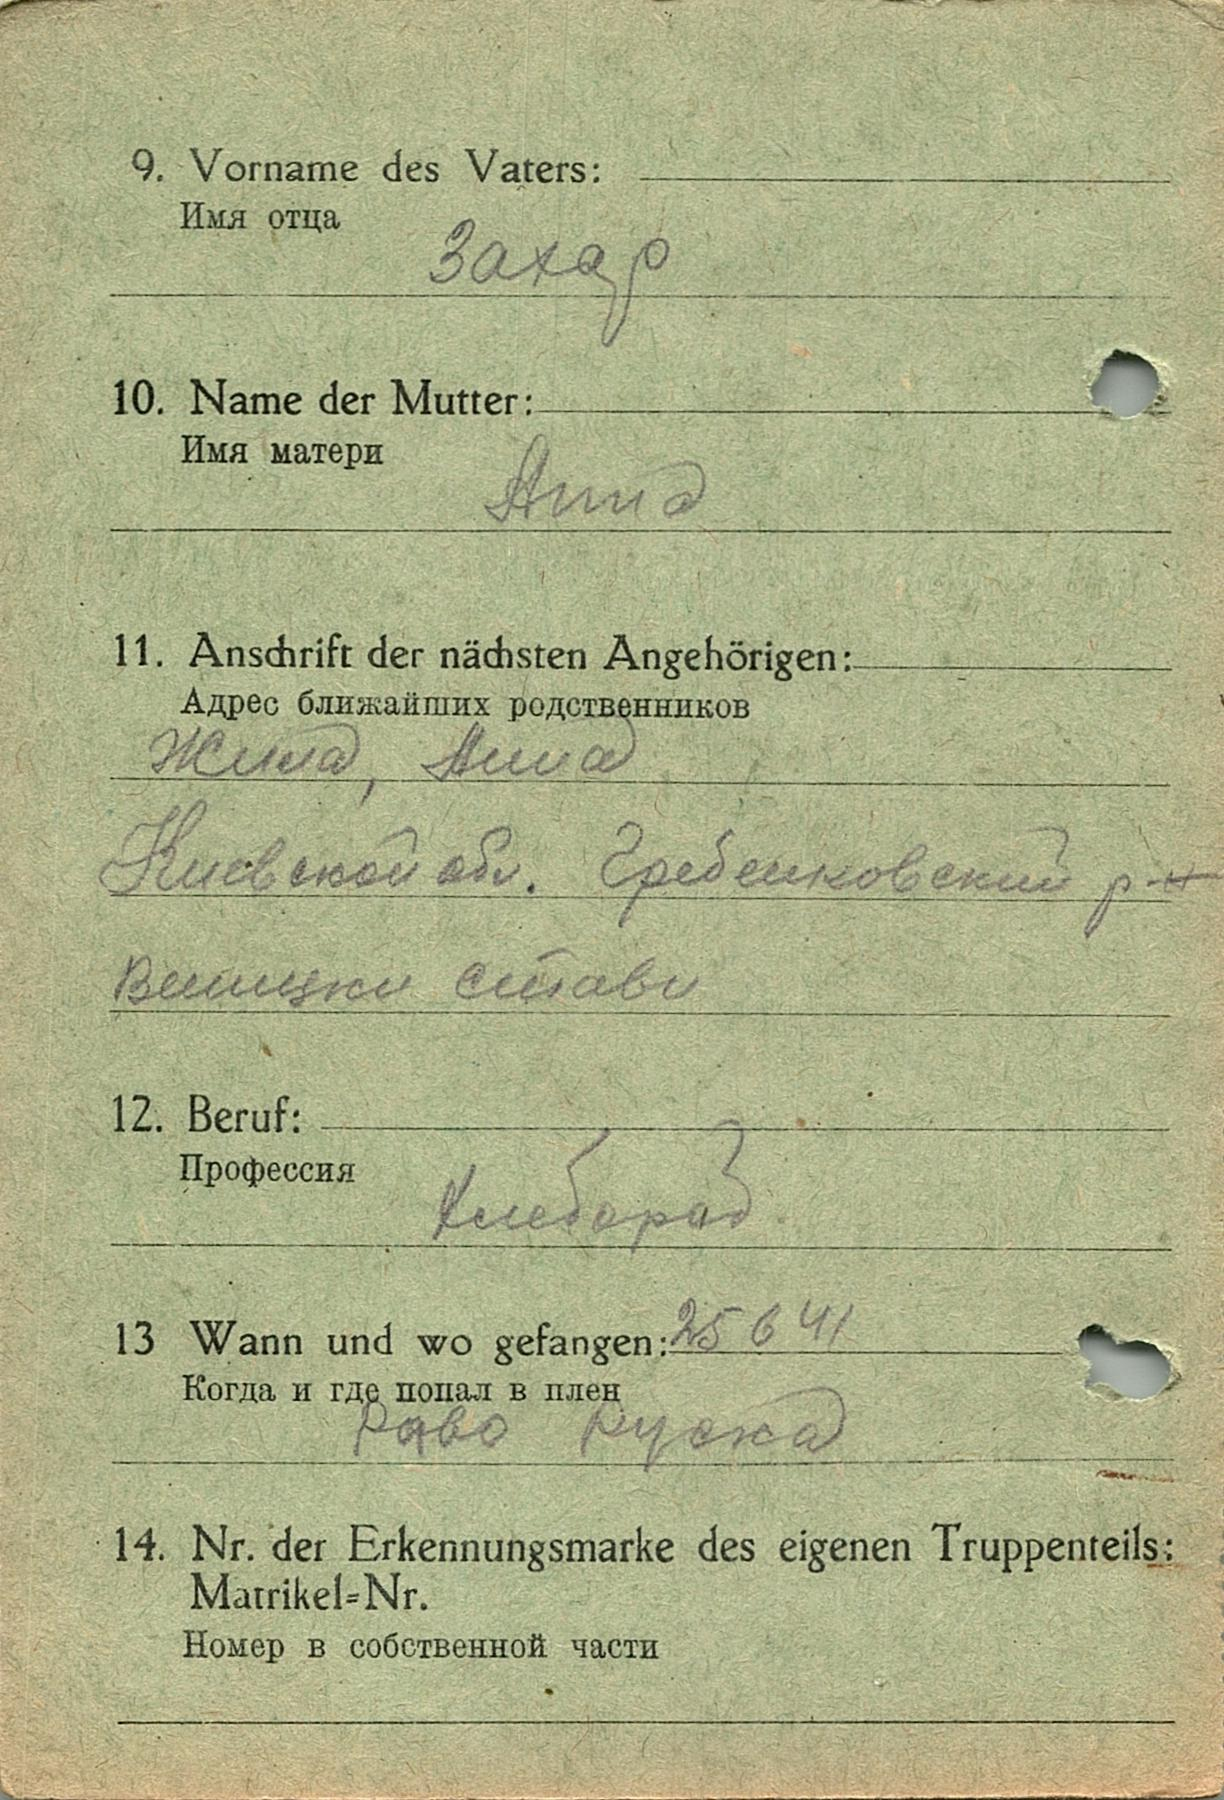 9. Vorname des Vaters:
Имя отца
Захар
10. Name der Mutter:
Имя матери
Анна
11. Anschrift der nächsten Angehörigen:
Адрес ближайших родственников
Анна
Киевской обл. Гребенковский р-н
стави
12. Beruf:
Профессия
Хлебораб
13 Wann und wo gefangen: 25 6 41
Когда и где попал в плен
Раво Руска
14. Nr. der Erkennungsmarke des eigenen Truppenteils:
Matrikel=Nr.
Номер в собственной части